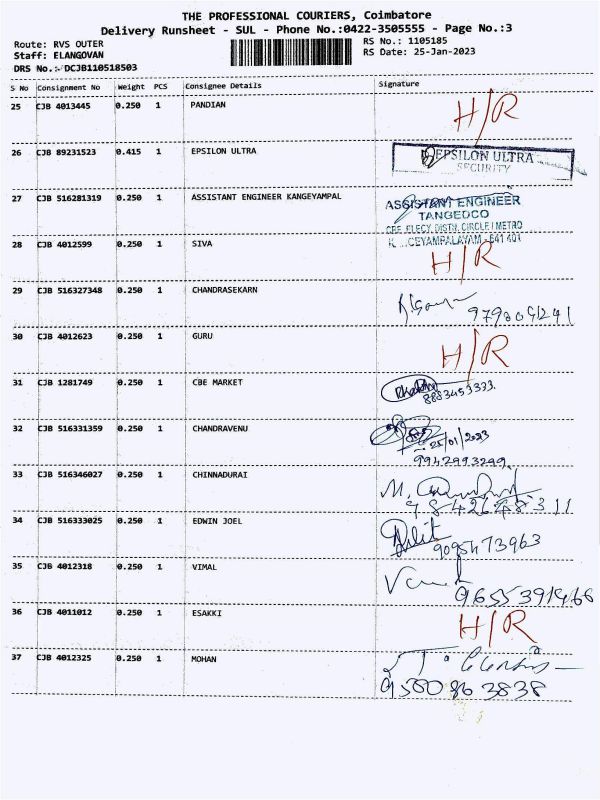 THE PROFESSIONAL COURIERS, Coimbatore
Delivery Runsheet - SUL - Phone No.:0422-3505555 - Page No.:3
Route: RVS OUTER RS No.: 1105185
Staff: ELANGOVAN RS Date: 25-Jan-2023
DRS No.:-DCJB110518503
S No Consignment No Weight PCS Consignee Details Signature
25 CJB 4013445 0.250 1 PANDIAN H/R
26 CJB 89231523 0.415 1 EPSILON ULTRA EPSILON ULTRA
SECURITY
27 CJB 516281319 0.250 1 ASSISTANT ENGINEER KANGEYAMPAL ASSISTANT ENGINEER
TANGEDCO
CBE ELECY. DISTN. CIRCLE / METRO
28 CJB 4012599 0.250 1 SIVA H/R
29 CJB 516327348 0.250 1 CHANDRASEKARN
30 CJB 4012623 0.250 1 GURU H/R
31 CJB 1281749 0.250 1 CBE MARKET
8883453333.
32 CJB 516331359 0.250 1 CHANDRAVENU 25/01/2023
9942993299.
33 CJB 516346027 0.250 1 CHINNADURAI M.
9842648311
34 CJB 516333025 0.250 1 EDWIN JOEL
9095473963
35 CJB 4012318 0.250 1 VIMAL
36 CJB 4011012 0.250 1 ESAKKI H/R
37 CJB 4012325 0.250 1 MOHAN
9500863838